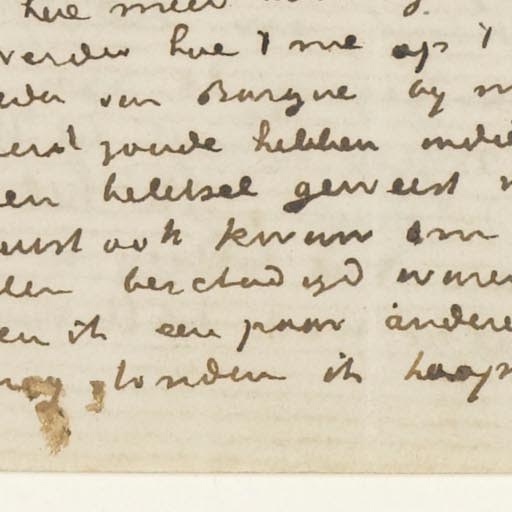 hoe meer
verder hoe 't me op 't
van Bargue by m
zoude hebben indie
en beletsel geweest
ook kwam om
len beschadigd waren
en ik een paar andere
zonden ik hoop